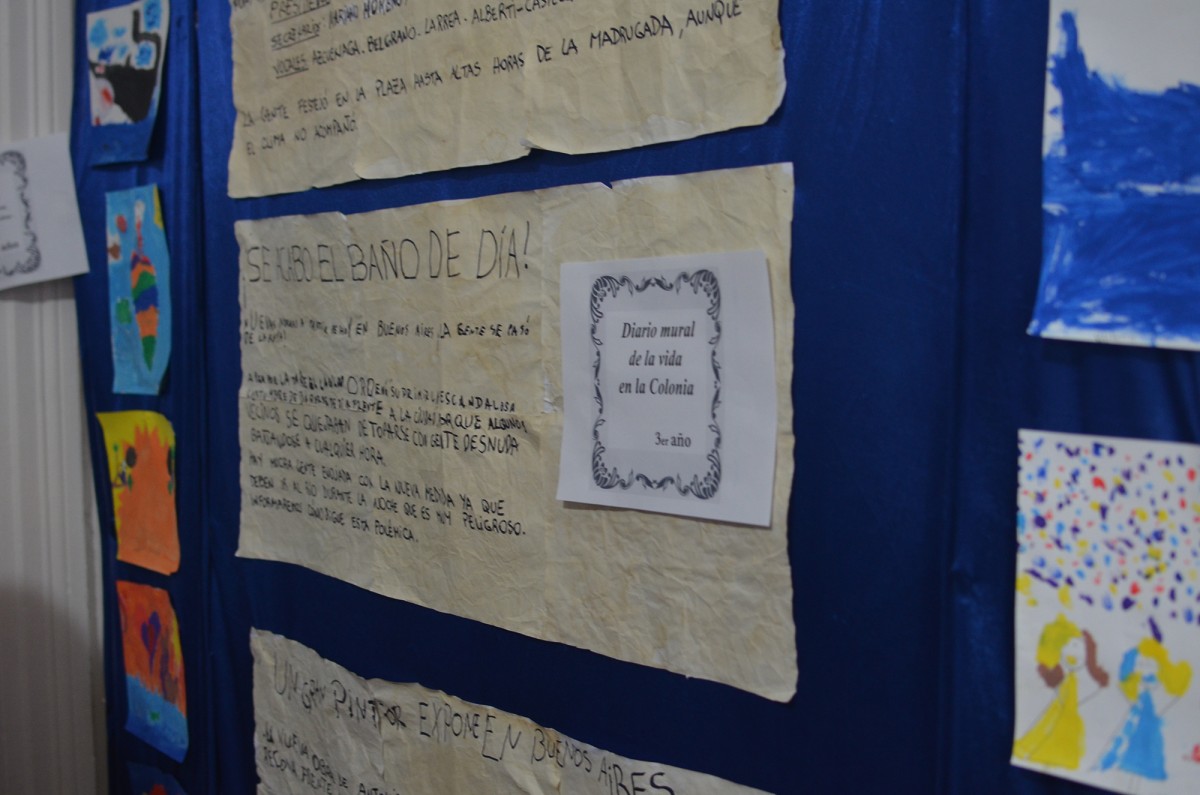 SECRETARIOS: MARIANO MORENO
VOCALES: AZCUENAGA. BELGRANO. LARREA. ALBERTI-
LA GENTE FESTEJÓ EN LA PLAZA HASTA ALTAS HORAS DE LA MADRUGADA, AUNQUE
EL CLIMA NO ACOMPAÑÓ.
¡SE ACABO EL BAÑO DE DÍA!
EN BUENOS AIRES LA GENTE SE
DE
ESCANDALOSA
A LA CIUDAD QUE ALGUNOS
VECINOS SE QUEJABAN DE TOPARSE CON GENTE DESNUDA
BAÑANDOSE A CUALQUIER HORA.
HAY MUCHA GENTE ENOJADA CON LA NUEVA MEDIDA YA QUE
DEBEN IR AL RÍO DURANTE LA NOCHE QUE ES MUY PELIGROSO.
INFORMAREMOS COMO SIGUE ESTA POLÉMICA.
Diario mural
de la vida
en la Colonia
3er año
UN GRAN PINTOR EXPONE EN BUENOS AIRES
LA NUEVA OBRA DE
año